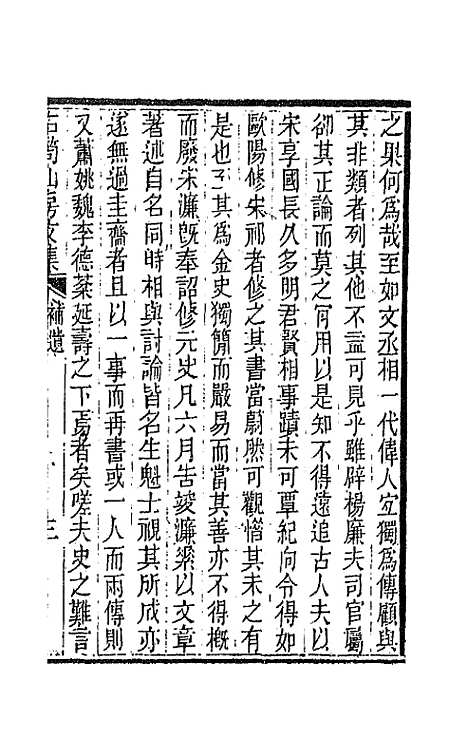 之果何爲哉至如文丞相一代偉人宜獨爲傳顧與
其非類者列其他不盡可見乎雖辟楊廉夫司官屬
卻其正論而莫之何用以是知不得遠追古人夫以
宋享國長久多明君賢相事蹟未可覃紀向令得如
歐陽修宋祁者修之其書當蔚然可觀惜其未之有
是也
其爲金史獨簡而嚴易而當其善亦不得槪
而廢宋濂旣奉詔修元史凡六月告竣濂
以文章
著述自名同時相與討論皆名生魁士視其所成亦
遂無過圭齋者且以一事而再書或一人而兩傳則
又蕭姚魏李德棻延壽之下焉者矣嗟夫史之難言
石
山房文集
補遺